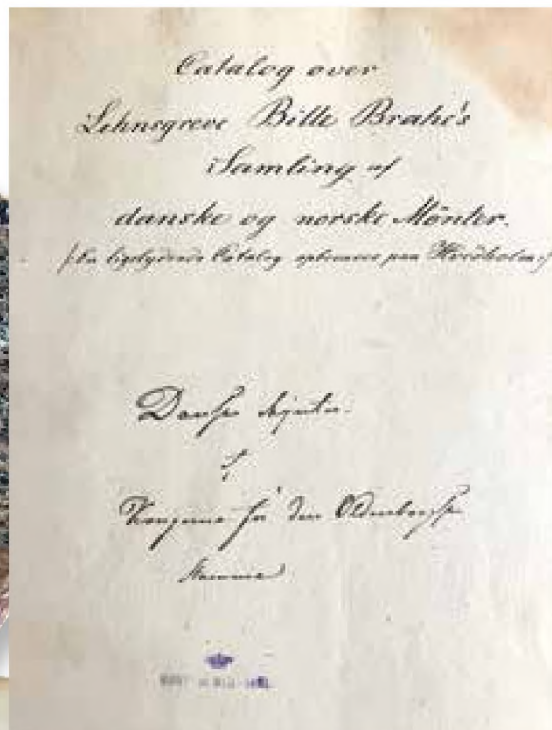 Catalog over
Lehnsgreve Bille Brahe's
Samling af
danske og norske Mönter.
(En ligelydende Catalog opbevares paa Hvedholm.)
Danske Mynter
af
Kongerne fra den Oldenborgske
Stamme